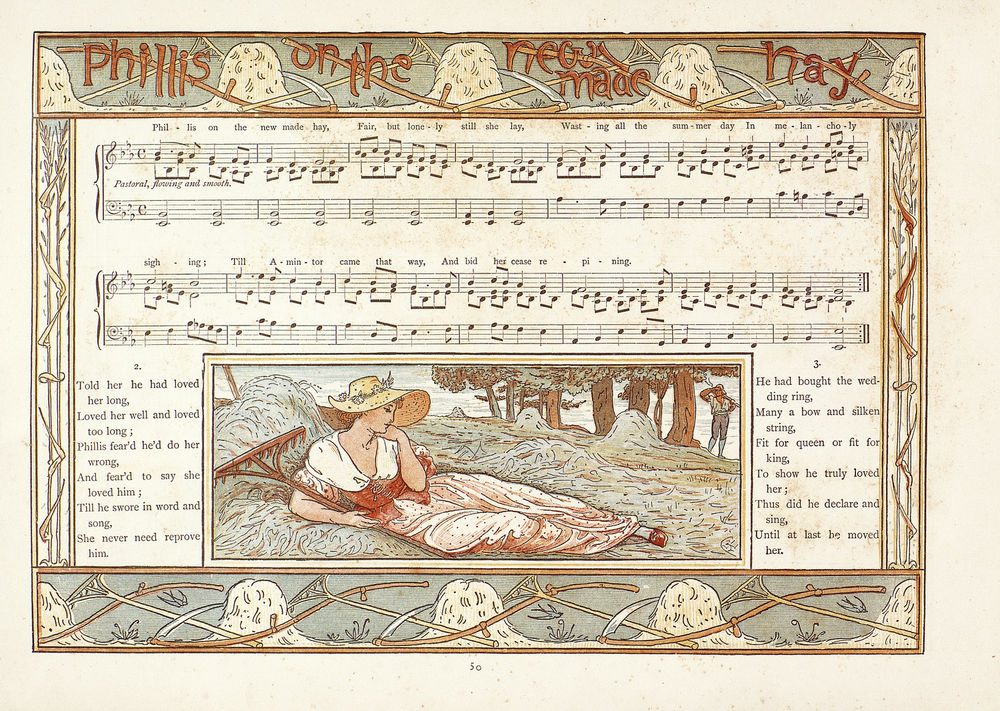 Phillis on the new made hay
Phil - lis on the new made hay, Fair, but lone - ly still she lay, Wast - ing all the sum - mer day In me - lan - cho - ly
Pastoral, flowing and smooth.
sigh - ing; Till A - min - tor came that way, And bid her cease re - pi - ning.
2.
Told her he had loved
her long,
Loved her well and loved
too long;
Phillis fear'd he'd do her
wrong,
And fear'd to say she
loved him;
Till he swore in word and
song,
She never need reprove
him.
3.
He had bought the wed-
ding ring,
Many a bow and silken
string,
Fit for queen or fit for
king,
To show he truly loved
her;
Thus did he declare and
sing,
Until at last he moved
her.
50